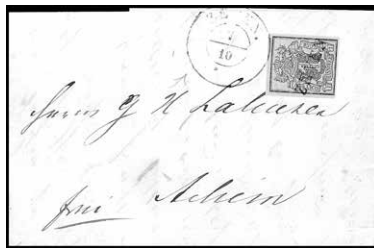 10
Herrn G H Lahusen
frei Achim